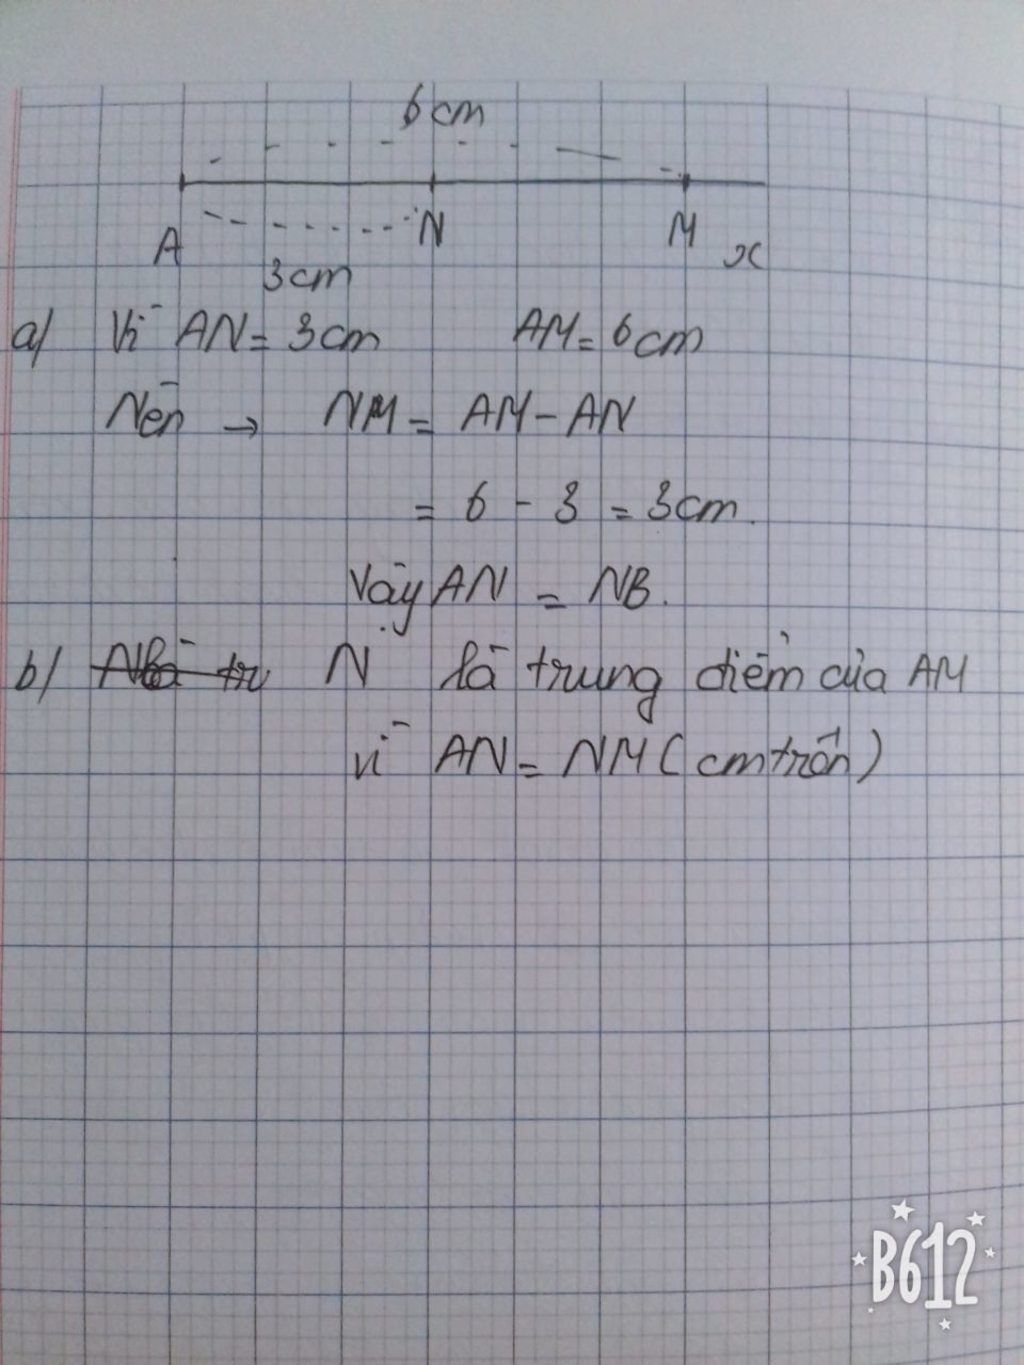 6cm
A N M x
3cm
a/ Vì AN = 3cm AM = 6cm
Nên → NM = AM - AN
= 6 - 3 = 3cm.
Vậy AN = NB.
b/ N là trung điểm của AM
vì AN = NM (cm trên)
B612